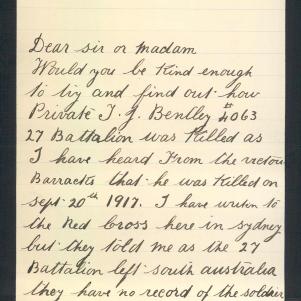 Dear sir or madam
Would you be kind enough
to try and find out how
Private T. J. Bentley # 4063
27 Battalion was Killed as
I have heard From the
Barracks that he was Killed on
sept 20th 1917. I have writen to
the Red Cross here in sydney
but they told me as the 27
Battalion left south australia
they have no record of the soldier